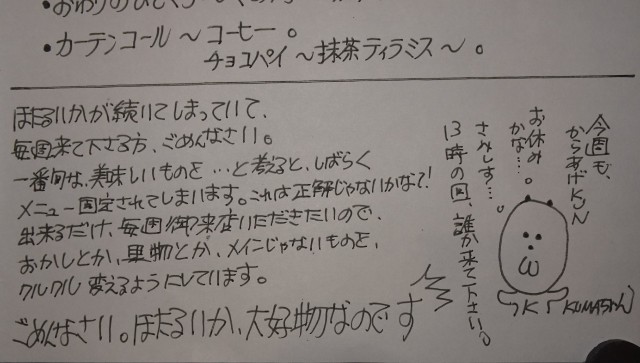 ・おわりのひとくち
・カーテンコール ～ コーヒー 。
チョコパイ ～抹茶ティラミス～ 。
ほたるいかが続いてしまっていて、
毎週来て下さる方、ごめんなさい。
一番旬な、美味しいものを…と考えると、しばらく
メニュー固定されてしまいます。これは正解じゃないかな?!
出来るだけ、毎週御来店いただきたいので、
おかしとか、果物とか、メインじゃないものを、
クルクル変えるようにしています。
ごめんなさい。ほたるいか、大好物なのです
今週も、
からあげKUN
お休み
かな…。
さみしす…。
13時の回、誰か来て下さい。
KUMAちゃん